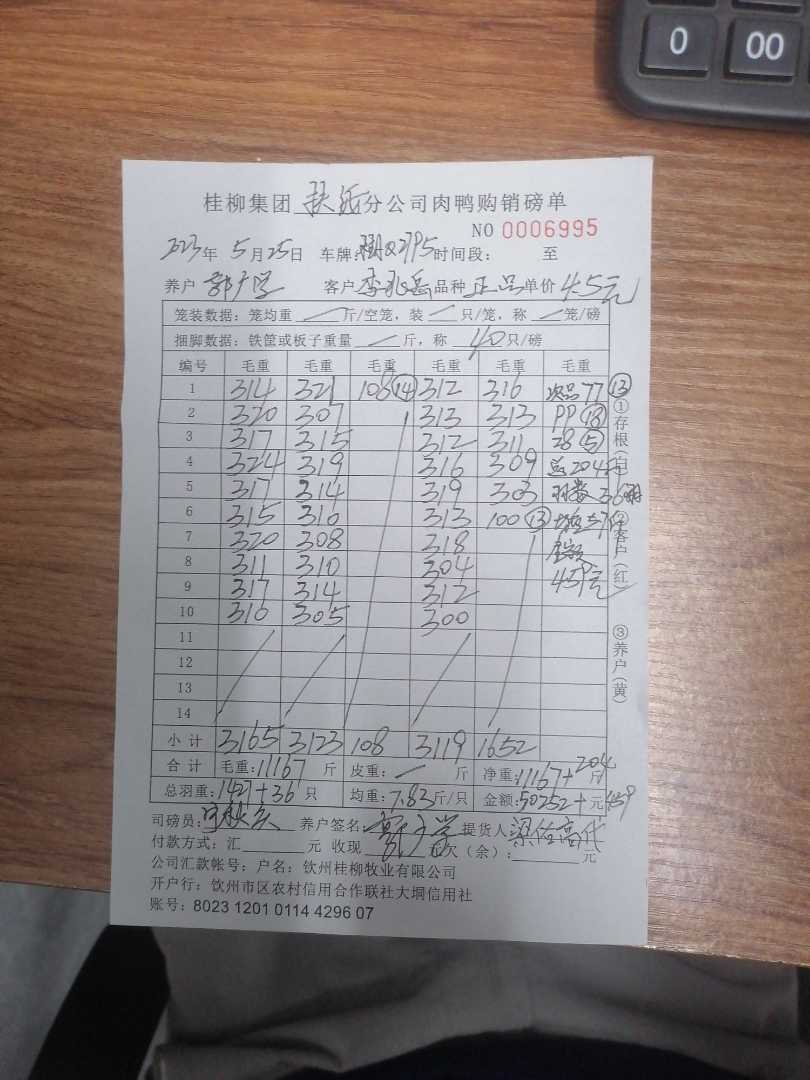 0 00
桂柳集团 扶绥 分公司肉鸭购销磅单
NO 0006995
2023年 5月25日 车牌: 时间段: 至
养户 郭广学 客户 李兆岳 品种 正品 单价 4.5元
笼装数据: 笼均重 — 斤/空笼, 装 — 只/笼, 称 — 笼/磅
捆脚数据: 铁筐或板子重量 — 斤, 称 40 只/磅
编号 毛重 毛重 毛重 毛重 毛重 毛重
1 314 321 108⑭ 312 316 次品77⑬
2 320 307 313 313 PP⑱
3 317 315 312 311 28⑤
4 324 319 316 309 总204斤
5 317 314 319 303 羽数36羽
6 315 310 313 100⑬
7 320 308 318 金额
8 311 310 304 459元
9 317 314 312
10 310 305 300
11
12
13
14
小计 3165 3123 108 3119 1652
合计 毛重: 11167 斤 皮重: — 斤 净重: 11167+204 斤
总羽重: 1427+36 只 均重: 7.83 斤/只 金额: 50252+ 元 459
①存根(白)
②客户(红)
③养户(黄)
司磅员: 养户签名: 郭广学 提货人: 梁佑高代
付款方式: 汇 元 收现 元欠(余): 元
公司汇款帐号: 户名: 钦州桂柳牧业有限公司
开户行: 钦州市区农村信用合作联社大垌信用社
账号: 8023 1201 0114 4296 07